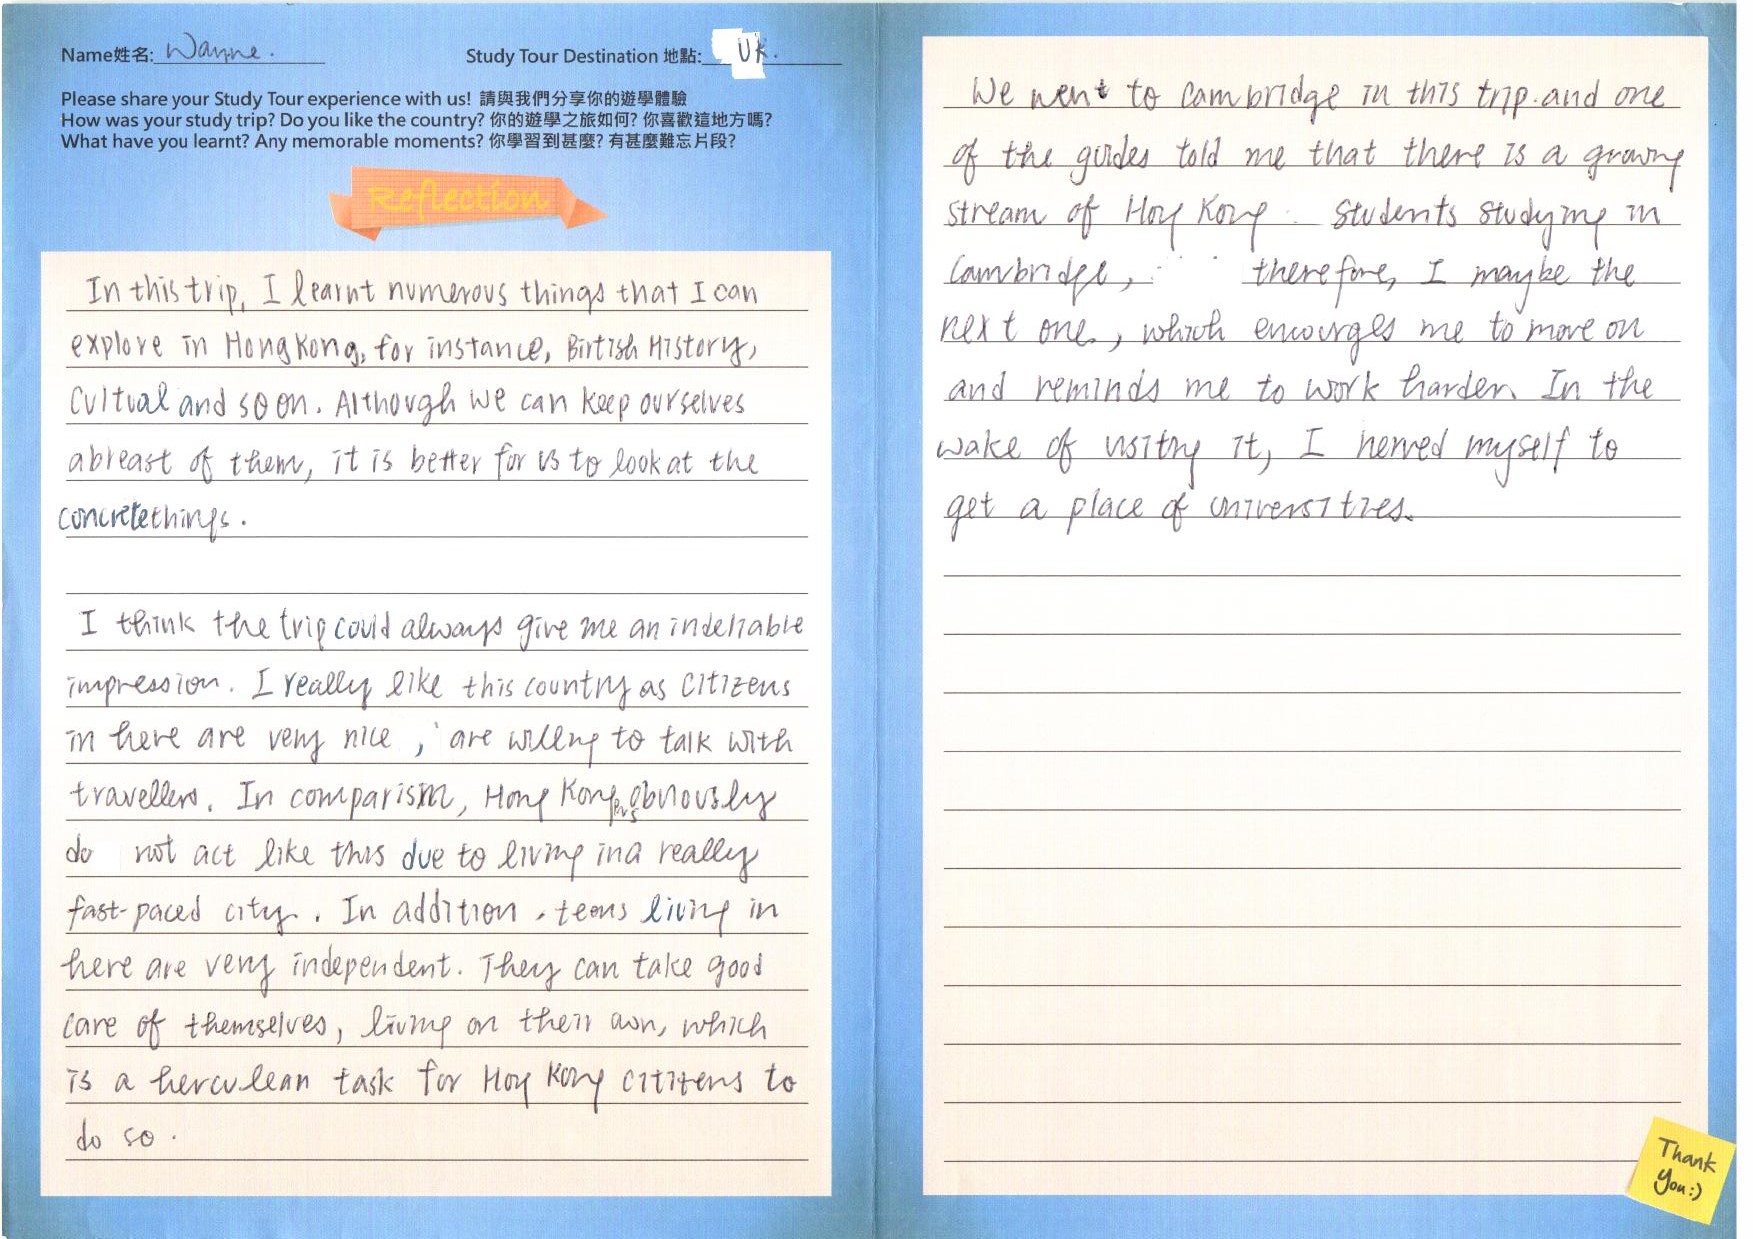 Name姓名: Wayne.
Study Tour Destination 地點: UK.
Please share your Study Tour experience with us! 請與我們分享你的遊學體驗
How was your study trip? Do you like the country? 你的遊學之旅如何? 你喜歡這地方嗎?
What have you learnt? Any memorable moments? 你學習到甚麼? 有甚麼難忘片段?
Reflection
In this trip, I learnt numerous things that I can
explore in Hong Kong, for instance, Birtish History,
Cultual and so on. Although we can keep ourselves
abreast of them, it is better for us to look at the
concrete things.
I think the trip could always give me an indeliable
impression. I really like this country as citizens
in here are very nice, are willing to talk with
travellers. In comparism, Hong Kongers obviously
do not act like this due to living in a really
fast-paced city. In addition, teens living in
here are very independent. They can take good
care of themselves, living on their own, which
is a herculean task for Hong Kong citizens to
do so.
We went to Cambridge in this trip. and one
of the guides told me that there is a growing
stream of Hong Kong students studying in
Cambridge, therefore, I maybe the
next one., which encourges me to move on
and reminds me to work harder. In the
wake of visiting it, I nerved myself to
get a place of universities.
Thank
You:)